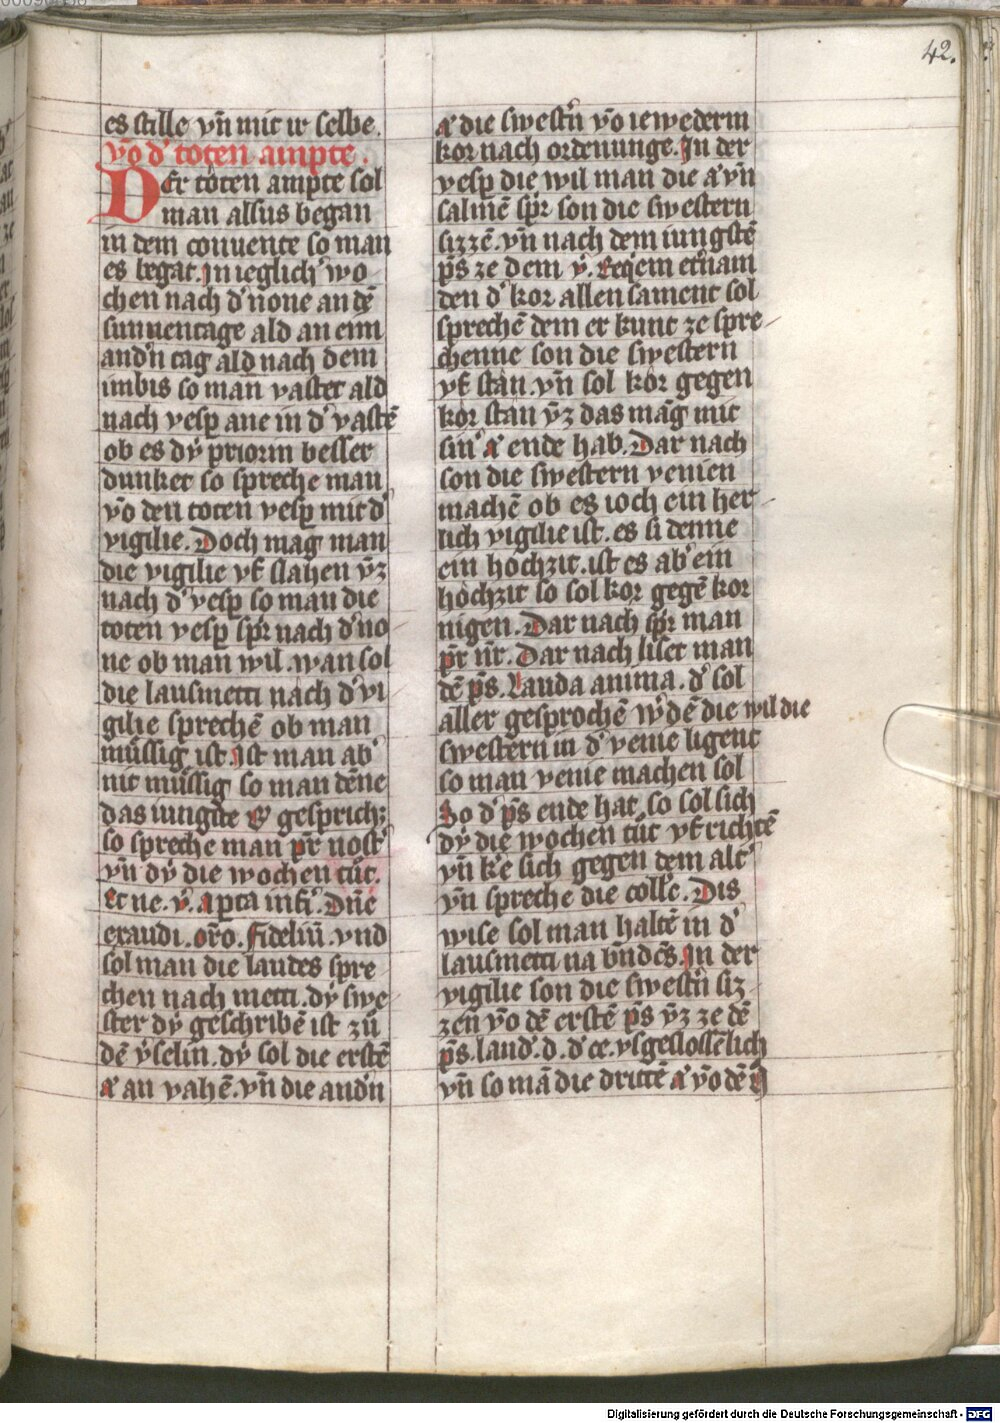 42.
es stille vn̄ mit ir selbe.
vō dʾ toten ampte.
DEr toten ampte sol
man alsus began
in dem conuente so man
es begat. jn ieglichʾ wo
chen nach dʾ none an dē
sunnentage ald an eim
andʾn tag ald nach dem
imbis so man vastet ald
nach vesp ane in dʾ vastē
ob es dy̍ priorin besser
dunket so spreche man
vō den toten vesp mit dʾ
vigilie. Doch mag man
die vigilie vf slahen v̄z
nach dʾ vesp so man die
toten vesp spr̄ nach dʾ no
ne ob man wil. wan sol
die lausmetti nach dʾ vi
gilie sprechē ob man
mu̍ssig ist. jst man abʾ
nit mu̍ssig so man dēne
das iungste & gesprichz
so spreche man pr̄ nostʾ
vn̄ dy̍ die wochen tu̍t.
Et ne. v̄. A pta infʾi. Dn̄e
exaudi. or̄o. Fideliū. vnd
sol man die laudes spre
chen nach metti. dy̍ swe
ster dy̍ geschribē ist zu̍
dē v̍selin. dy̍ sol die erstē
aʾ an vahē. vn̄ die andʾn
aʾ die swestʾn vō iewederm
kor nach ordenunge. Jn der
vesp die wil man die aʾ vn̄
salmē spr̄ son die swestern
sizzē. vn̄ nach dem iungstē
ps̄ ze dem v̄. Reqiem etʾnam
den dʾ kor allen sament sol
sprechē dem er kunt ze spre
chenne son die swestern
vf stan. vn̄ sol kor gegen
kor stan v̄z das maḡ mit
sinʾ aʾ ende hab. Dar nach
son die swestern venien
machē ob es ioch ein her
lich vigilie ist. es si denne
ein hochzit. ist es abʾ ein
hochzit so sol kor gegē kor
nigen. Dar nach spr̄ man
pr̄ nr̄. Dar nach liset man
dē ps̄. Lauda anima. dʾ sol
aller gesprochē wʾdē die wil die
swestern in dʾ venie ligent
so man venie machen sol
So dʾ ps̄ ende hat so sol sich
dy̍ die wochen tu̍t vf richtē
vn̄ kʾe sich gegen dem altʾ
vn̄ spreche die collʾe. Dis
wise sol man haltē in dʾ
lausmetti na bn̄dcs̄. Jn der
vigilie son die swestʾn siz
zen vō dē erstē ps̄ v̄z ze dē
ps̄. laud. d. dʾ ce. vsgeslossēlich
vn̄ so mā die drittē aʾ vō dē
Digitalisierung gefördert durch die Deutsche Forschungsgemeinschaft - DFG